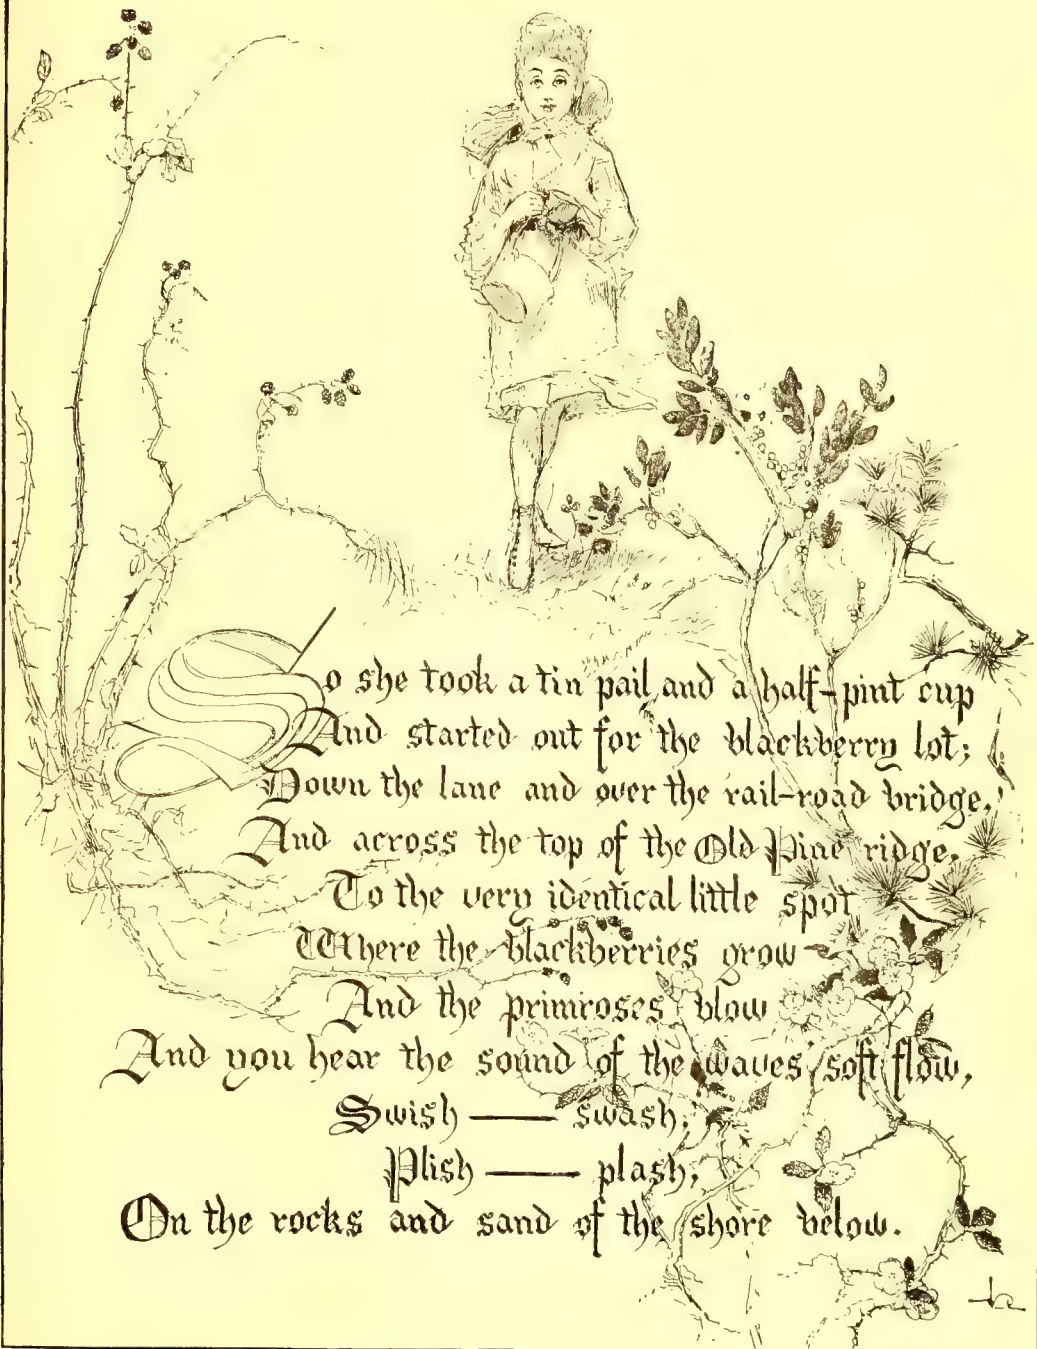 So she took a tin pail and a half-pint cup
And started out for the blackberry lot;
Down the lane and over the rail-road bridge,
And across the top of the Old Pine ridge,
To the very identical little spot
Where the blackberries grow
And the primroses blow
And you hear the sound of the waves' soft flow,
Swish — swash,
Plish — plash,
On the rocks and sand of the shore below.